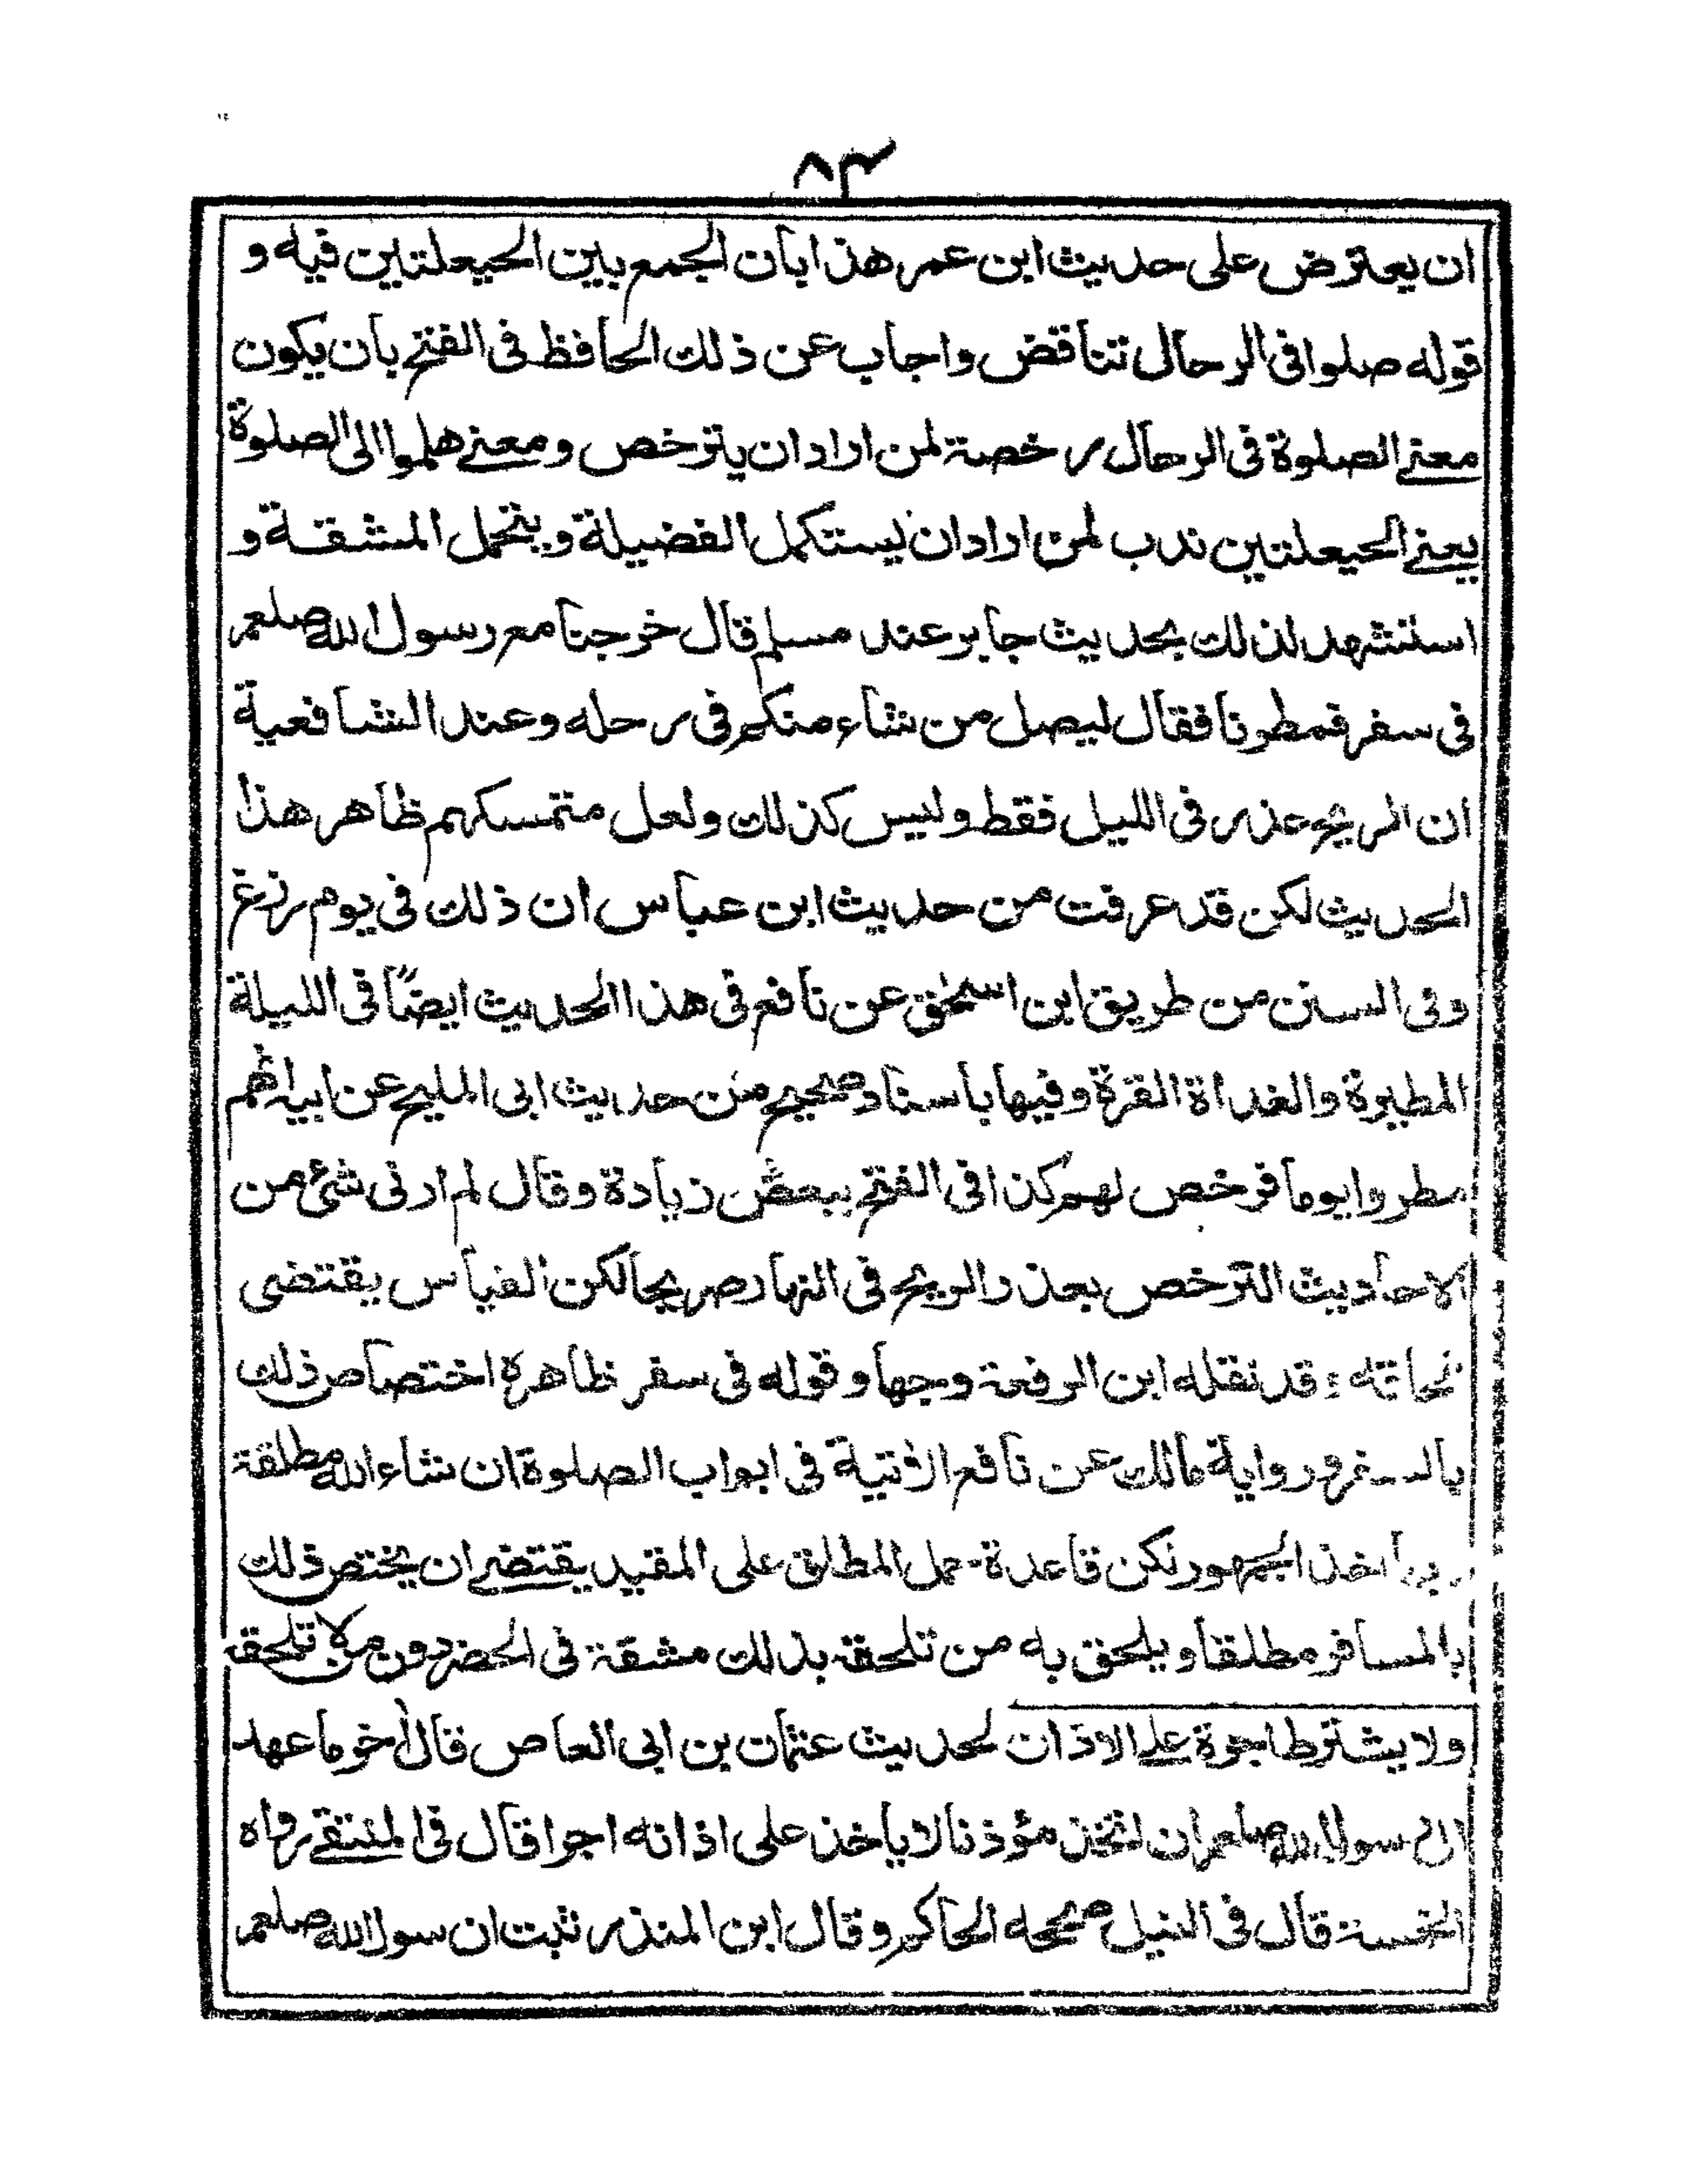 ٨٣
ان يعترض على حديث ابن عمر هذا بان الجمع بين الحيعلتين فيه و
قوله صلوا فى الرحال تناقض واجاب عن ذلك الحافظ فى الفتح بان يكون
معنے الصلوة فى الرحال رخصة لمن اراد ان يترخص ومعنے هلموا الى الصلوة
يعنے الحيعلتين ندب لمن اراد ان يستكمل الفضيلة ويتحمل المشقة و
استشهد لذلك بحديث جابر عند مسلم قال خرجنا مع رسول الله صلعم
فى سفر فمطرنا فقال ليصل من شاء منكم فى رحله وعند الشافعية
ان الريح عذر فى الليل فقط وليس كذلك ولعل متمسكهم ظاهر هذا
الحديث لكن قد عرفت من حديث ابن عباس ان ذلك فى يوم رزغ
وفى السنن من طريق ابن اسحٰق عن نافع فى هذا الحديث ايضًا فى الليلة
المطيرة والغداة القرة وفيها باسناد صحيح من حديث ابى المليح عن ابيه انهم
مطروا يوما فرخص لهم كذا فى الفتح ببعض زيادة وقال لم ار فى شئ من
الاحاديث الترخص بعذر الريح فى النهار صريحا لكن القياس يقتضى
الحاقه وقد نقله ابن الرفعة وجها وقوله فى سفر ظاهره اختصاص ذلك
بالسفر ورواية مالك عن نافع الاتية فى ابواب الصلوة ان شاء الله مطلقة
وبها اخذ الجمهور لكن قاعدة حمل المطلق على المقيد يقتضے ان يختص ذلك
بالمسافر مطلقا ويلحق به من تلحقه بذلك مشقة فى الحضر دون من لا تلحقه
ولا يشترط اجرة علے الاذان لحديث عثمان بن ابى العاص قال اٰخر ما عهد
الى رسول الله صلعم ان اتخذ مؤذنا لا ياخذ على اذانه اجرا قال فى المنتقے رواه
الخمسة قال فى النيل صححه الحاكم وقال ابن المنذر ثبت ان رسول الله صلعم